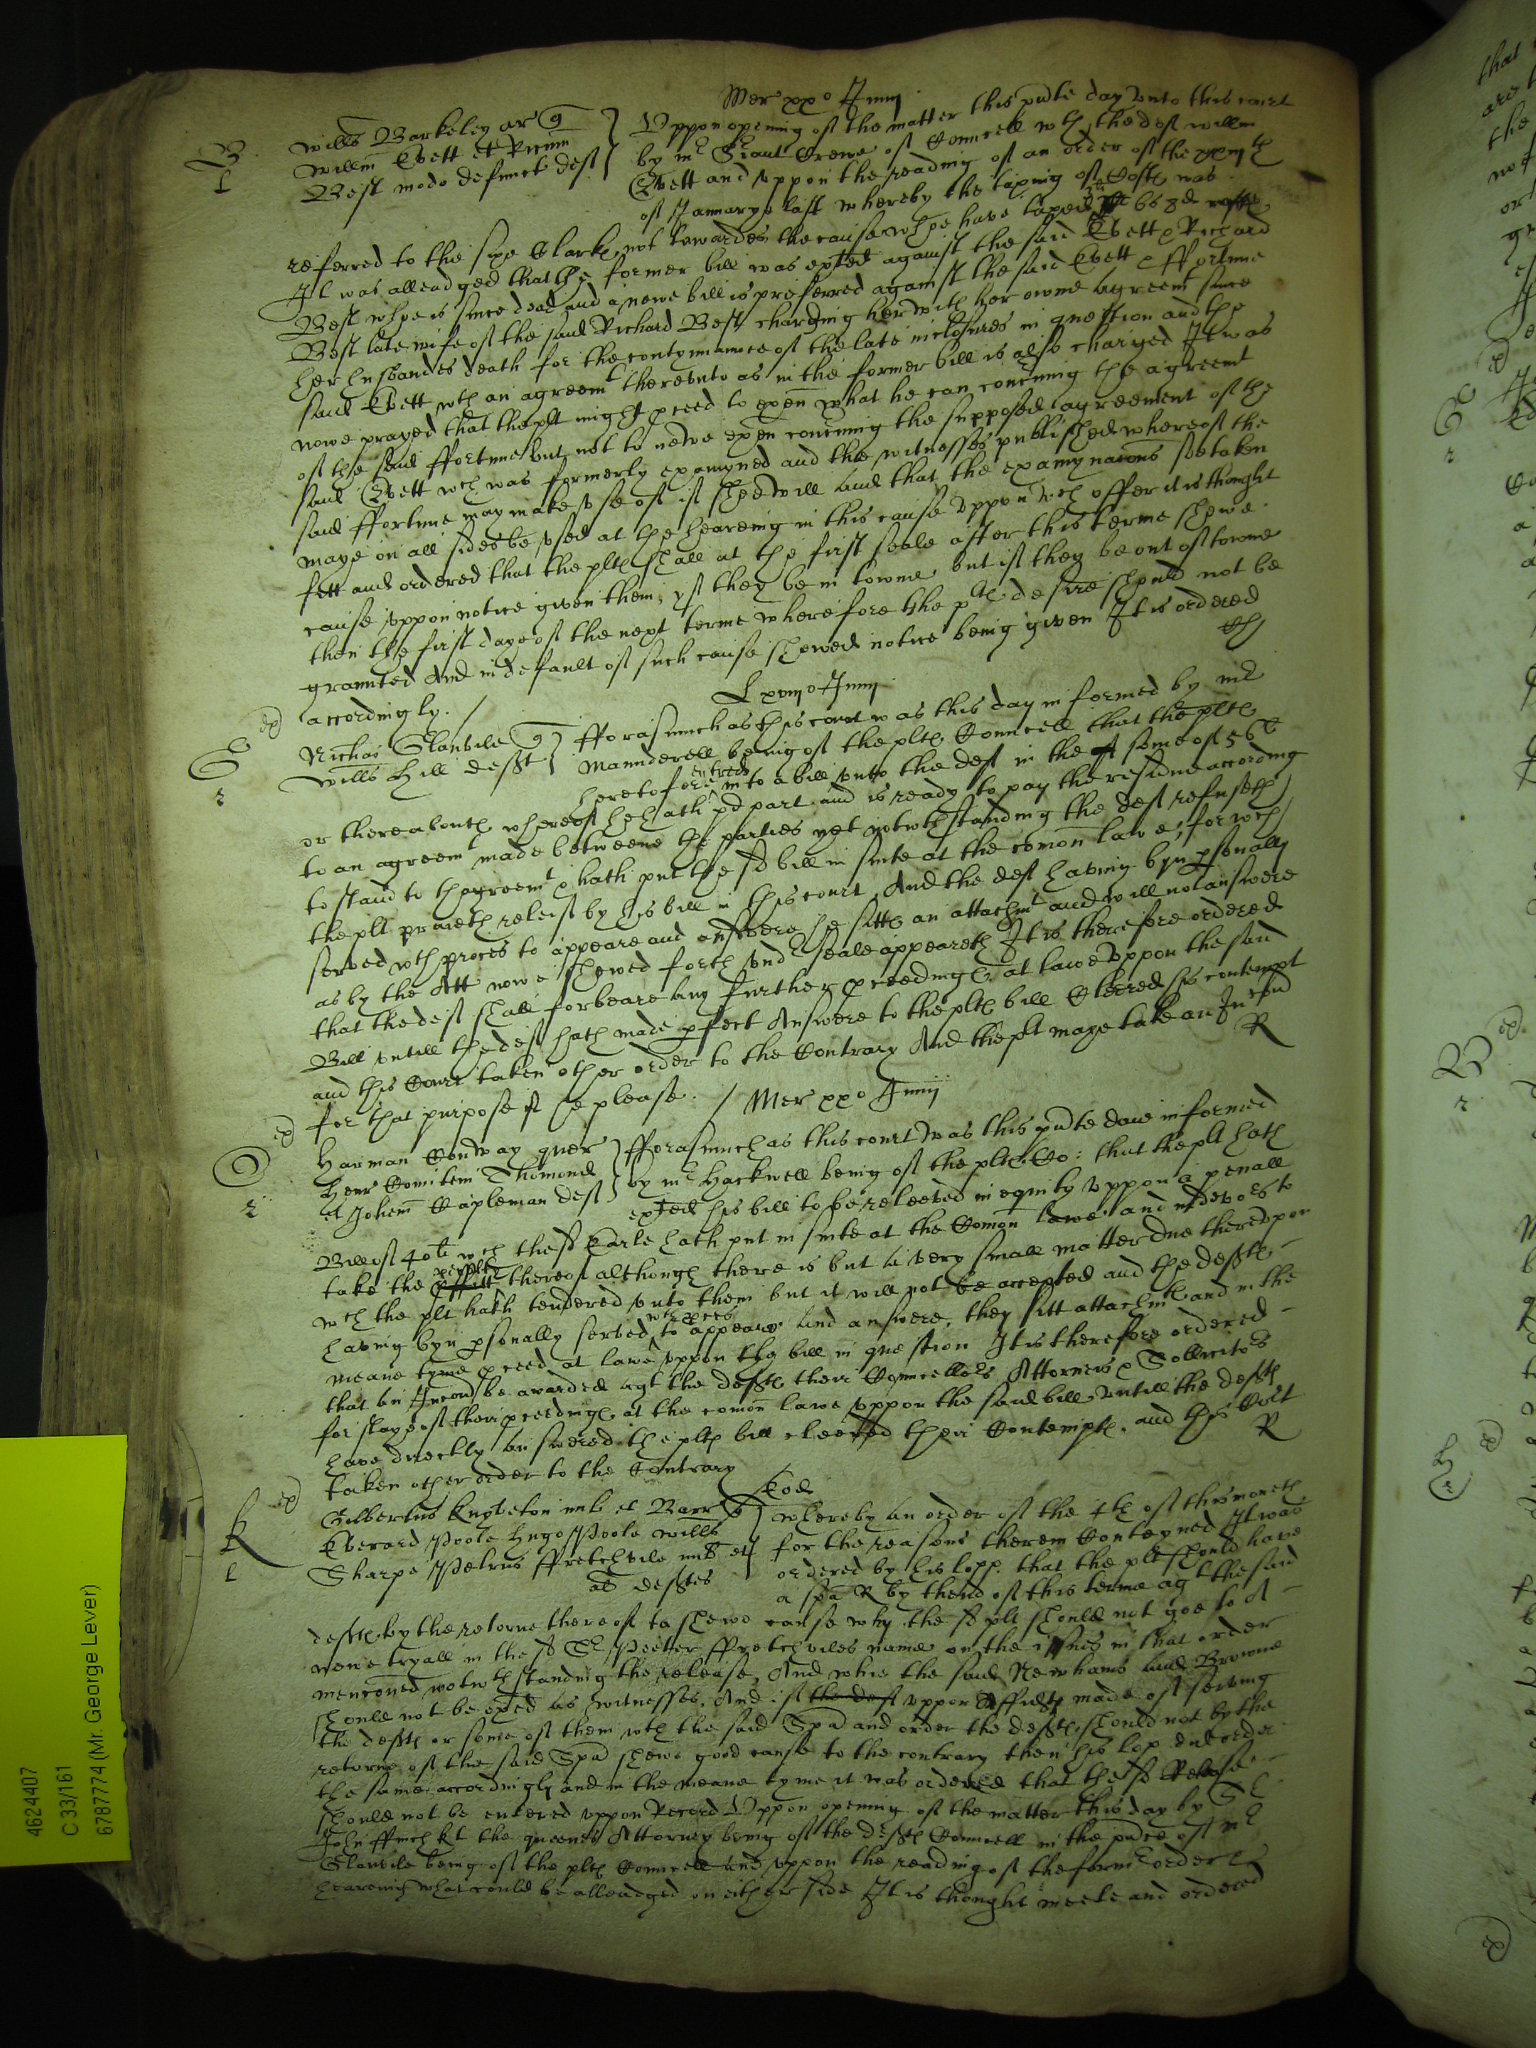 Mer xxo Junij
B
Willus Barkeley ar quer
Willm Evett et Ricum
Best modo defunct deft
l
Uppon opening of the matter this pnte day unto this court
by mr Sriant Crewe of Councell wth the deft Willm
Evett and uppon the reading of an order of the
of January last whereby the taxing of Costs was
referred to the sixe Clarks not towardes the cause whoe have taxed 6s 8d
It was alleadged that the former bill was exted against the said Evett & Richard
Best whoe is since dead and a newe bill is preferred against the said Evett & ffortune
Best late wife of the said Richard Best charging her with her owne agreemt since
her husbandes death for the contynuance of the late inclosures in question and the
said Evett wth an agreemt thereunto as in the former bill is also charged It was
nowe prayed that the plt might pceed to exen what he can concning the agreemt
of the said ffortune but not to newe exen concning the supposed agreement of the
said Evett wch was formerly examyned and the witnesses published whereof the
said ffortune may make use of if shee will And that the examynacons soe taken
maye on all sides be used at the heareing in this cause uppon wch offer it is thought
fitt and ordered that the plts shall at the first seale after this terme shewe
cause uppon notice given them, yf they be in towne, but if they be out of towne
then the first daye of the next terme wherefore the plts desire should not be
graunted And in default of such cause shewed notice being given It is ordered
accordingly. /
Lxviijo Junij
G
ex
r
Nichas Glanvile quer
Willus Hill deft
fforasmuch as this court was this day informed by mr
Maunderell being of the plts Councell that the plt
heretofore entred into a bill unto the deft in the some of 56l
or thereabouts whereof he hath pd part and is ready to pay the residue according
to an agreemt made betweene the parties yet notwthstanding the deft refuseth
to stand to thagreemt & hath put the sd bill in suite at the comon lawe, for wch
the plt praieth releif by his bill in this court And the deft having byn psonally
served wth proces to appeare and answere he sitts an attachmt and will not answere
as by the Att nowe shewed forth undr seale appeareth It is therefore ordered
that the deft shall forbeare any further pceedings at lawe uppon the said
Bill untill the deft hath made pfect Answere to the plts bill Cleered his contempt
and this Court taken other order to the Contrary And the plt maye take an Iniunc
for that purpose if he please. /
R
Mer xxo Junij
C
ex
r
Harman Conway quer
Henr Comitem Thomond
et Johem Capleman deft
fforasmuch as this court was this pnte daie informed
by mr Hackwell being of the plts Co: that the plt hath
exted his bill to be releeved in equity uppon a penall
Bill of 40l wch the sd Earle hath put in suite at the Comon lawe and indevors to
take the thereof although there is but a very small matter due thereuppon
wch the plt hath tendered unto them but it will not be accepted and the defts
having byn psonally served wth pces to appeare And answere, they sitt attachmt and in the
meane tyme pceed at lawe uppon the bill in question It is therefore ordered
that an Iniuncon be awarded agt the defts their Councellors Attorneis & Sollicitors
for staye of their pceedings at the comon lawe uppon the said bill untill the defts
have directly answered the plts bill cleered their Contempts. and this Cort
taken other order to the Contrary
R
K
ex
l
Eod
Gilbertus Knyveton mil et Barr quer
Everard Poole Hugo Poole Willus
Sharpe Petrus ffretchvile mil et
al defts
Whereby an order of the 4th of this moneth
for the reasons therein Conteyned It was
ordered by his lopp. that the plt should have
a spa R by thend of this terme agt the said
defts by the retorne thereof to shewe cause why the sd plt should not goe to A
newe tryall in the sd Sr Peeter ffretchviles name on the issues in that order
mencioned notwthstanding the release, And whie the said Newhams and Browne
should not be exed as witnesses, And if the deft uppon Affidts made of serving
the defts or some of them wth the said Spa and order the defts should not by the
retorne of the said Spa shewe good cause to the contrary then his lop. did order
the same accordingly and in the meane tyme it was ordered that the sd Release
should not be entered uppon Record Uppon opening of the matter this day by Sr
John ffinch kt the queenes Attorney being of the defts Councell in the pnce of mr
Glanvile being of the plts Councell and uppon the reading of the formr order &
heareing what could be alleadged on either side It is thought meete and ordered
4624407
C 33/161
6787774 (Mr. George Lever)